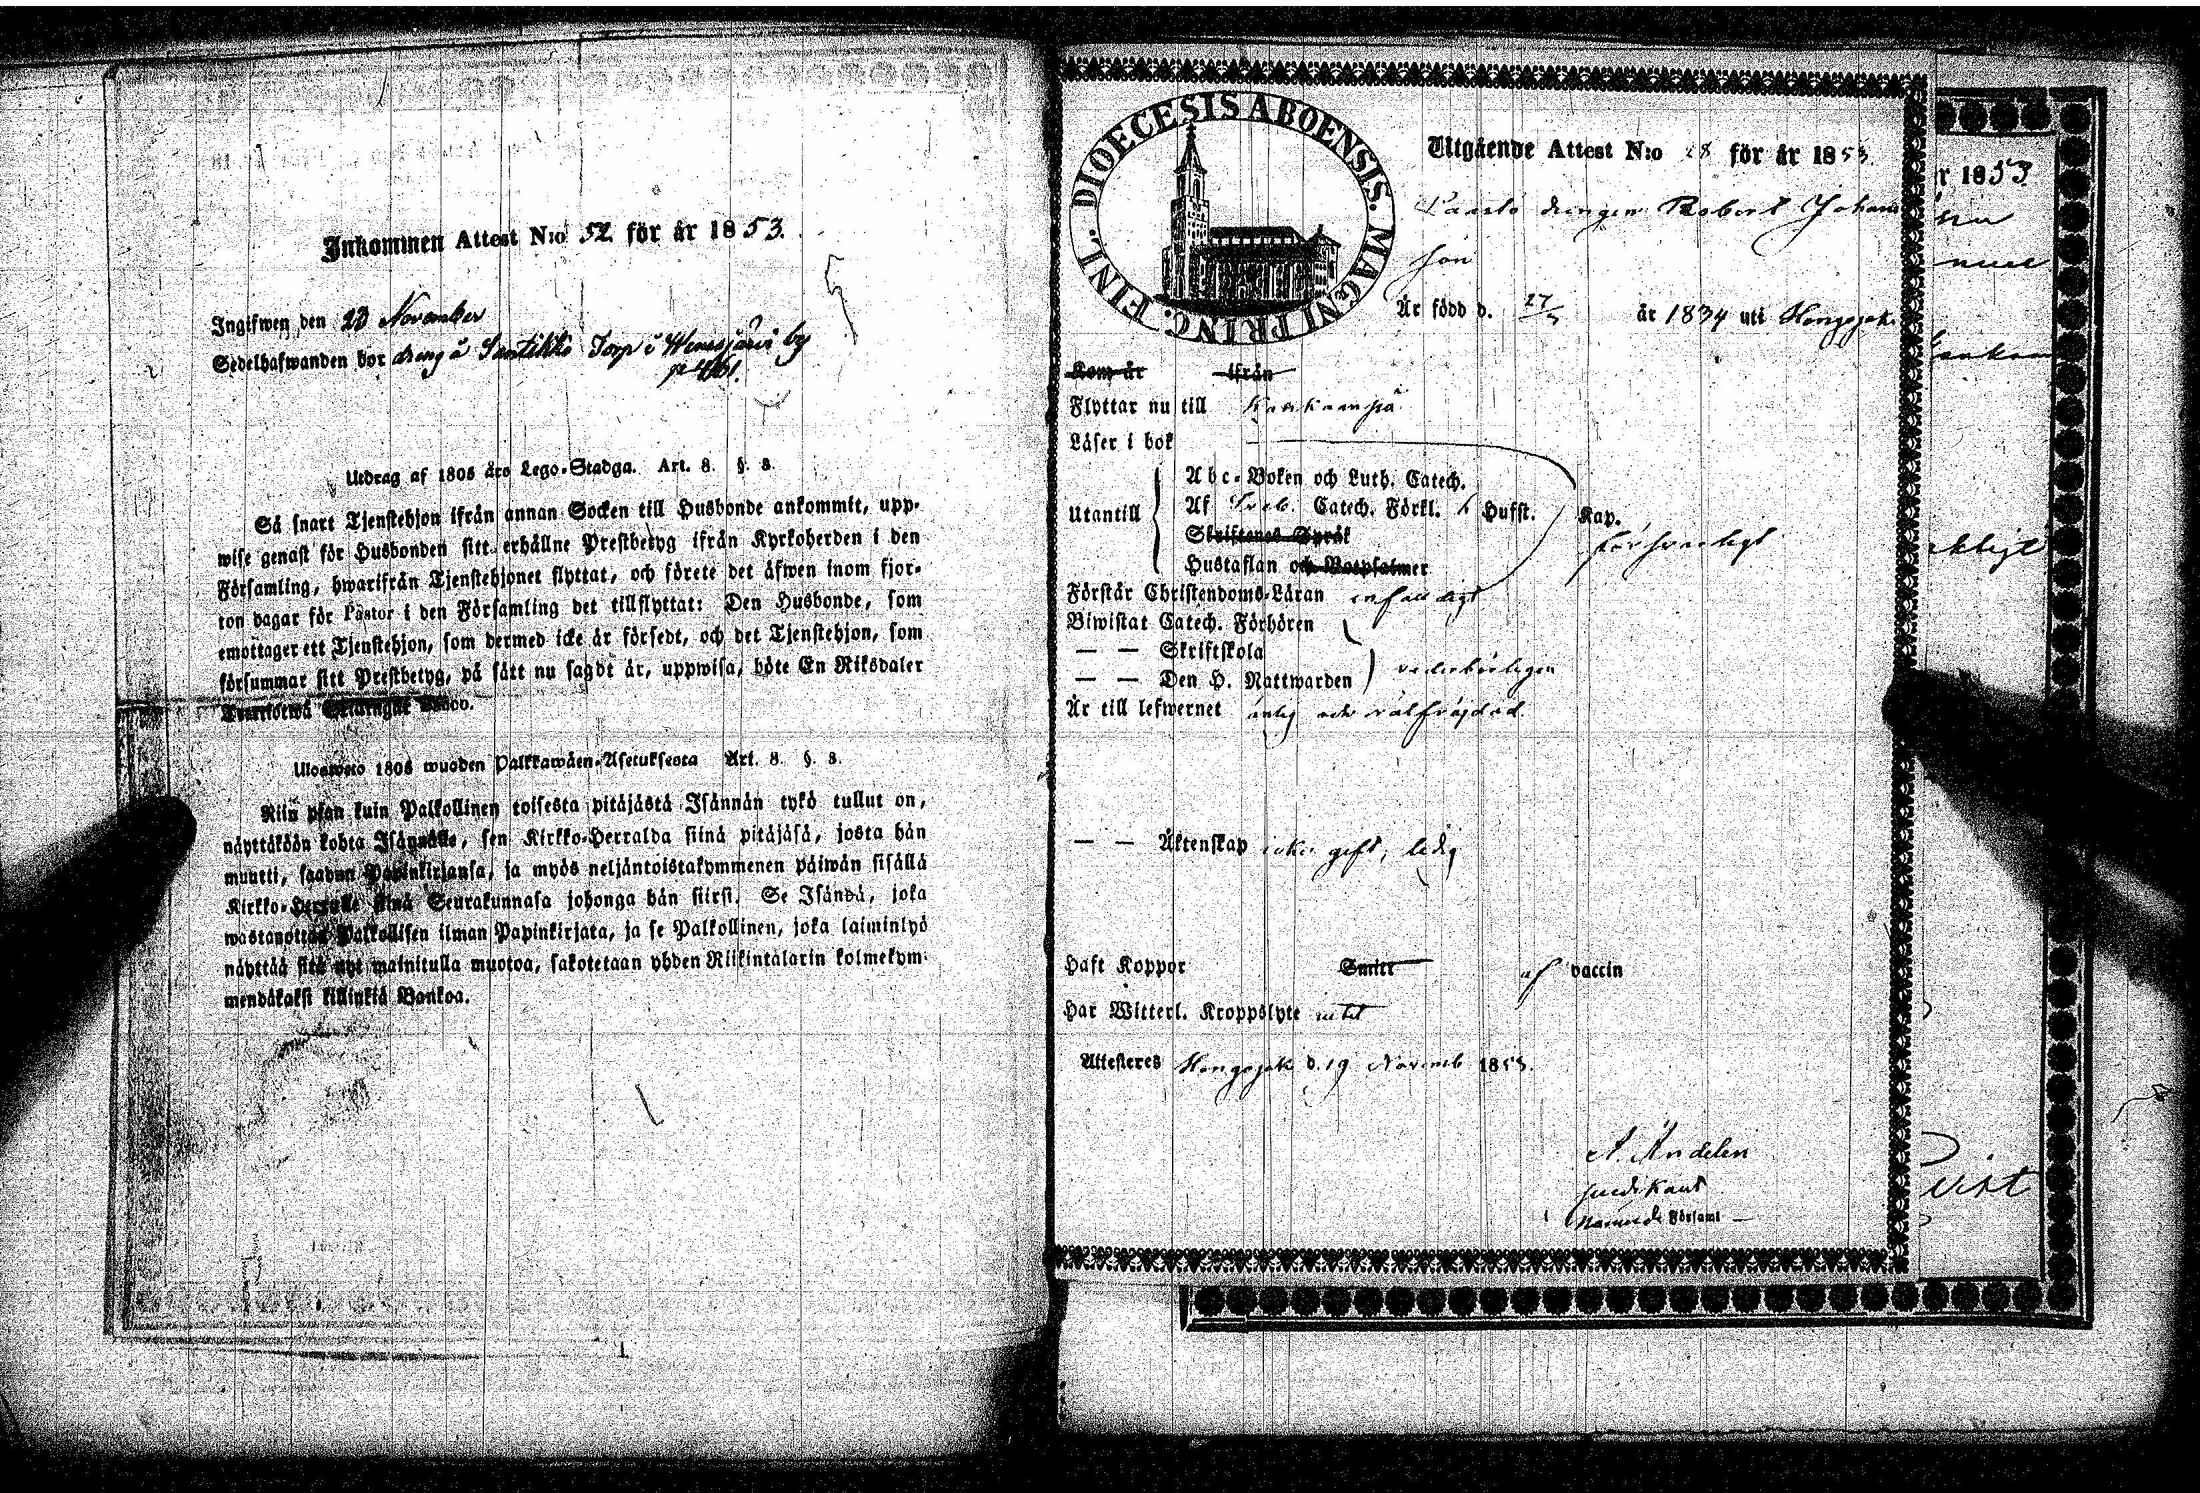 Inkommen Attest N:o 52 för år 1853.
Ingifwen den 23 November
Sedelhafwanden bor dräng å Torp i by
Utdrag af 1805 års Lego-Stadga. Art. 8. §. 8.
Så snart Tjenstehjon ifrån annan Socken till Husbonde ankommit, upp-
wise genast för Husbonden sitt erhållne Prestbetyg ifrån Kyrkoherden i den
Församling, hwarifrån Tjenstehjonet flyttat, och förete det äfwen inom fjor-
ton dagar för Pastor i den Församling det tillflyttat: Den Husbonde, som
emottager ett Tjenstehjon, som dermed icke är försedt, och det Tjenstehjon, som
försummar sitt Prestbetyg, på sätt nu sagdt är, uppwisa, böte En Riksdaler
Trettiotwå Skillingar Banco.
Ulosweto 1805 wuoden Palkkawäen-Asetuksesta Art. 8. §. 8.
Niin pian kuin Palkollinen toisesta pitäjästä Isännän tykö tullut on,
näyttäköön kohta Isännälle, sen Kirkko-Herralda siinä pitäjäsä, josta hän
muutti, saadun Papinkirjansa, ja myös neljäntoistakymmenen päiwän sisällä
Kirkko-Herralle siinä Seurakunnasa johonga hän siirsi. Se Isändä, joka
wastanottaa Palkollisen ilman Papinkirjata, ja se Palkollinen, joka laiminlyö
näyttää sitä nyt mainitulla muotoa, sakotetaan yhden Riikintalarin kolmekym-
mendäkaksi killinkiä Bankoa.
DIOECESIS ABOENSIS. MAGNI PRINC. FINL.
Utgående Attest N:o 28 för år 1853
drengen Robert Johans
son
Är född d. 27/5 år 1834 uti Hongojok.
Kom år ifrån
Flyttar nu till Kankaanpä
Läser i bok
Utantill
Abc-Boken och Luth. Catech.
Af Sveb. Catech. Förkl. Hufst. Kap.
Skriftenes Språk
Hustaflan och Botpsalmer
försvarligt
Förstår Christendoms-Läran enfaldigt
Biwistat Catech. Förhören
— — Skriftskola
— — Den H. Nattwarden vederbörligen
Är till lefwernet ärlig och välfrejdad.
— — Äktenskap icke gift, ledig
Haft Koppor Smitt af vaccin
Har Witterl. Kroppslyte intet
Attesteres Hongojok d. 19 Novemb 1853.
predikant
Församl
r 1853